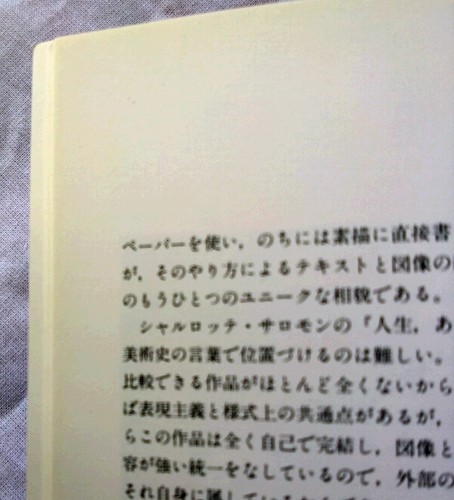 ペーパーを使い，のちには素描に直接書
が，そのやり方によるテキストと図像の
のもうひとつのユニークな相貌である。
シャルロッテ・サロモンの『人生，あ
美術史の言葉で位置づけるのは難しい。
比較できる作品がほとんど全くないから
ば表現主義と様式上の共通点があるが，
らこの作品は全く自己で完結し，図像と
容が強い統一をなしているので，外部の
それ自身に属している